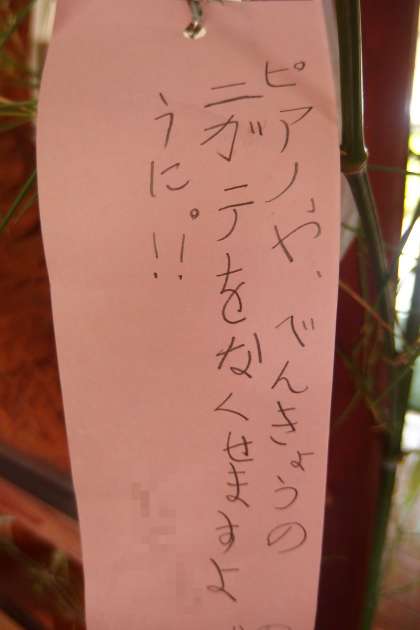 ピアノや、でんきょうの
ニガテをなくせますよ
うに。!!